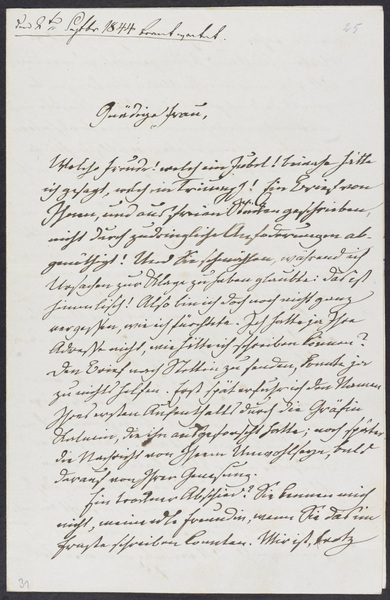 den 8ten Septbr. 1844 beantwortet.
25
Gnädige Frau,
Welche Freude! welch ein Jubel! beinahe hätte
ich gesagt, welch ein Triumph! Ein Brief von
Ihnen, und aus freien Stücken geschrieben,
nicht durch zudringliche Anforderungen ab-
genöthigt! Und Sie schmählen, während ich
Ursachen zur Klage zu haben glaubte: das ist
himmlisch! Also bin ich doch noch nicht ganz
vergessen, wie ich fürchtete. Ich hatte ja Ihre
Adresse nicht, wie hätte ich schreiben können?
Den Brief nach Stettin zu senden, konnte ja
zu nichts helfen. Erst spät erfuhr ich den Namen
Ihres ersten Aufenthalts durch die Gräfin
die ihn ausgeforscht hatte; noch später
die Nachricht von Ihrem Unwohlseyn, bald
darauf von Ihrer Genesung.
Ein trockner Abschied! Sie kennen mich
nicht, meine edle Freundin, wenn Sie das im
Ernste schreiben konnten. Mir ist, trotz
31